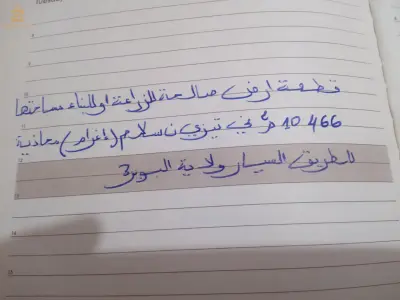 قطعة ارض صالحة للزراعة او للبناء مساحتها
10 466 م² في تيزي ن سلام (إغرام) محاذية
للطريق السيار ولاية البويرة